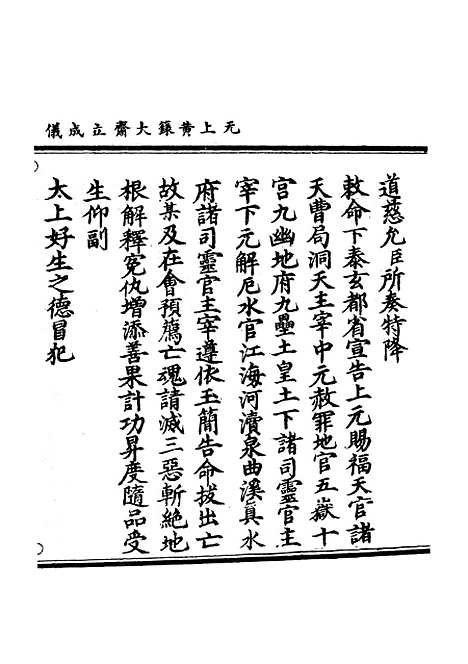 无上黄籙大齋立成儀
道慈允臣所奏特降
敕命下泰玄都省宣告上元賜福天官諸
天曹局洞天主宰中元赦罪地官五嶽十
宫九幽地府九壘土皇土下諸司靈官主
宰下元解厄水官江海河瀆泉曲溪真水
府諸司靈官主宰遵依玉簡告命拔出亡
故某及在會預薦亡魂請滅三惡斬絶地
根解釋冤仇增添善果計功昇度隨品受
生仰副
太上好生之德冒犯